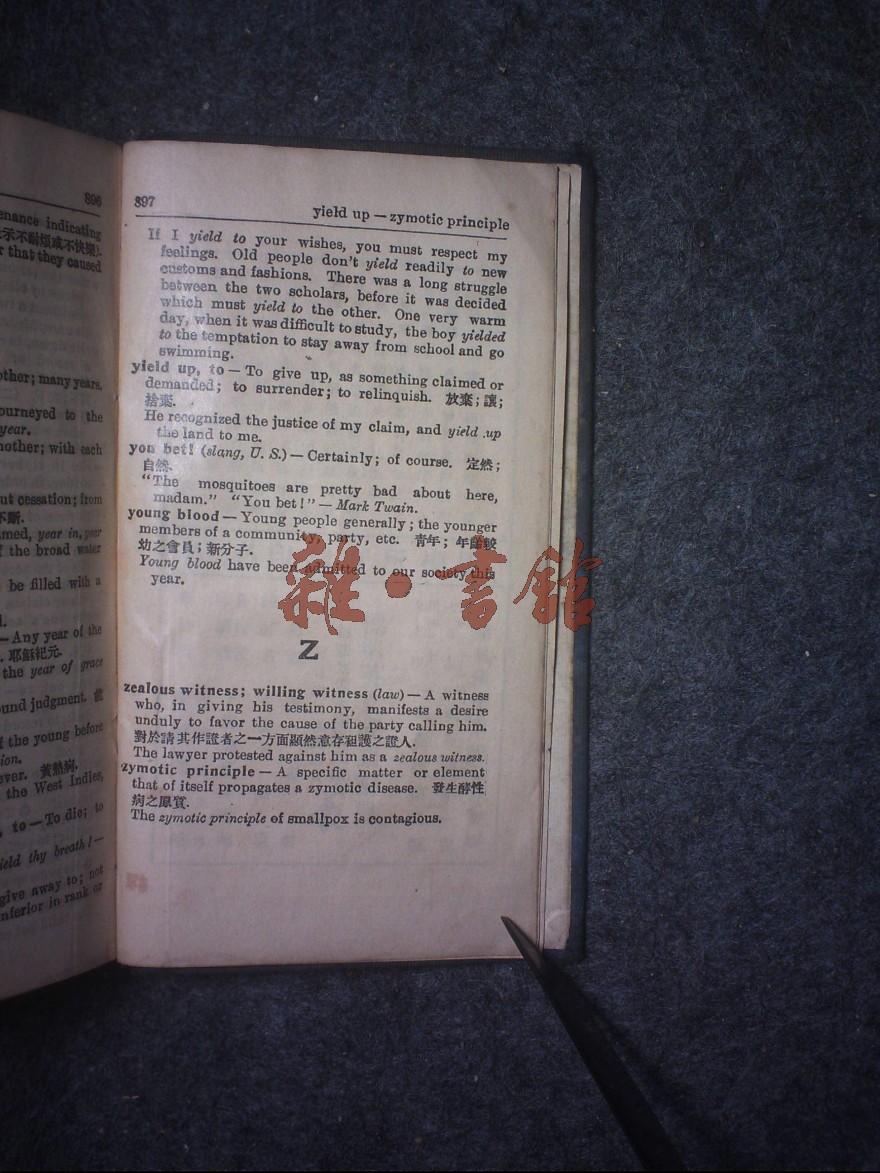 896
enance indicating
示不耐煩或不快樂).
that they caused
other; many years,
ourneyed to the
year.
nother; with each
ut cessation; from
不斷.
med, year in, year
f the broad water
be filled with a
—Any year of the
耶穌紀元.
the year of grace
und judgment.
f the young before
sion.
ever. 黃熱病.
the West Indies,
to—To die; to
ield thy breath!—
give away to; not
nferior in rank or
897
yield up — zymotic principle
If I yield to your wishes, you must respect my
feelings. Old people don't yield readily to new
customs and fashions. There was a long struggle
between the two scholars, before it was decided
which must yield to the other. One very warm
day, when it was difficult to study, the boy yielded
to the temptation to stay away from school and go
swimming.
yield up, to — To give up, as something claimed or
demanded; to surrender; to relinquish. 放棄; 讓;
捨棄.
He recognized the justice of my claim, and yield up
the land to me.
you bet! (slang, U. S.) — Certainly; of course. 定然;
自然.
"The mosquitoes are pretty bad about here,
madam." "You bet!" — Mark Twain.
young blood — Young people generally; the younger
members of a community, party, etc. 青年; 年齡較
幼之會員; 新分子.
Young blood have been admitted to our society this
year.
雜·書館
Z
zealous witness; willing witness (law) — A witness
who, in giving his testimony, manifests a desire
unduly to favor the cause of the party calling him.
對於請其作證者之一方面顯然意存袒護之證人.
The lawyer protested against him as a zealous witness.
zymotic principle — A specific matter or element
that of itself propagates a zymotic disease. 發生酵性
病之原質.
The zymotic principle of smallpox is contagious.